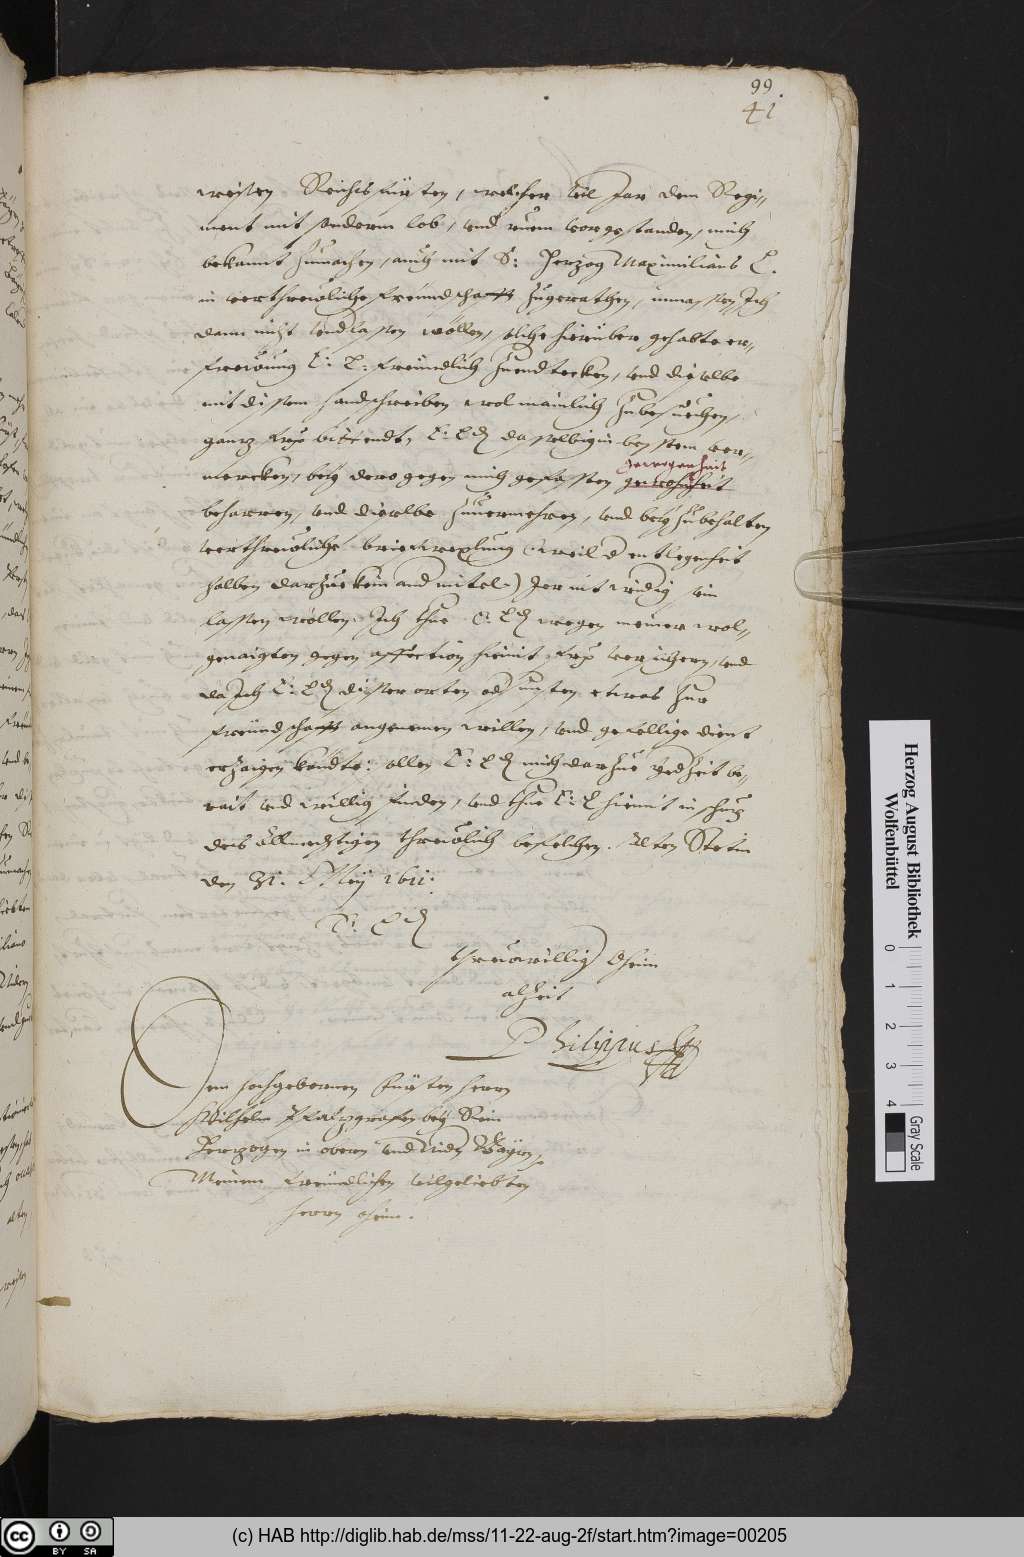 99
41
weisen Reichsfürsten, welcher viel Jar dem Regi„
ment mit sonderm lob, vnd ruem vorgestanden, mich
bekannt zumachen, auch mit S: Herzog Maximilians L.
in vertrewliche freündschafft zugerathen, inmassen Ich
dann nicht vnderlassen wöllen, solche hierüber gehabte er„
frewung E: L: freündlich zuendtecken, vnd dieselbe
mit disem handschreiben wolmainlich zubesuechen,
ganz bittendt, E: Ld dasselbig in bestem ver„
mercken, bey dero gegen mich gefassten
gewogenheit
gewohnheit
beharren, vnd dieselbe zuuermehren, vnd bey zubehalten
vertrewliche briefwexlung (weil d entlegenheit
halben darzue kein and mitel)
lassen wöllen. Ich thue E: Ld wegen meiner wol„
genaigten gegen affection hiemit versichern, vnd
da Ich E: Ld diser orten od sunsten etwas zur
freündschafft angenemen willen, vnd gefellige dienst
erzaigen köndte: sollen E: Ld mich darzue Jedzeit be„
rait vnd willig finden, vnd thue E: L hiemit in schuz
des Allmechtigen threwlich befelchen. Alten Stetin
den 31. May 1611:
E: Ld
threuwillig Oheim
alzeit
Philippus
Dem hochgebornen Fürsten herrn
Wilhelm Pfalzgrafen bey Rein
Herzogen in obern vnd Nidn Bayrn,
Meinem freündlichen vilgeliebten
herrn oheim.
Herzog August Bibliothek
Wolfenbüttel
0 1 2 3 4
Gray Scale
cc BY SA
(c) HAB http://diglib.hab.de/mss/11-22-aug-2f/start.htm?image=00205